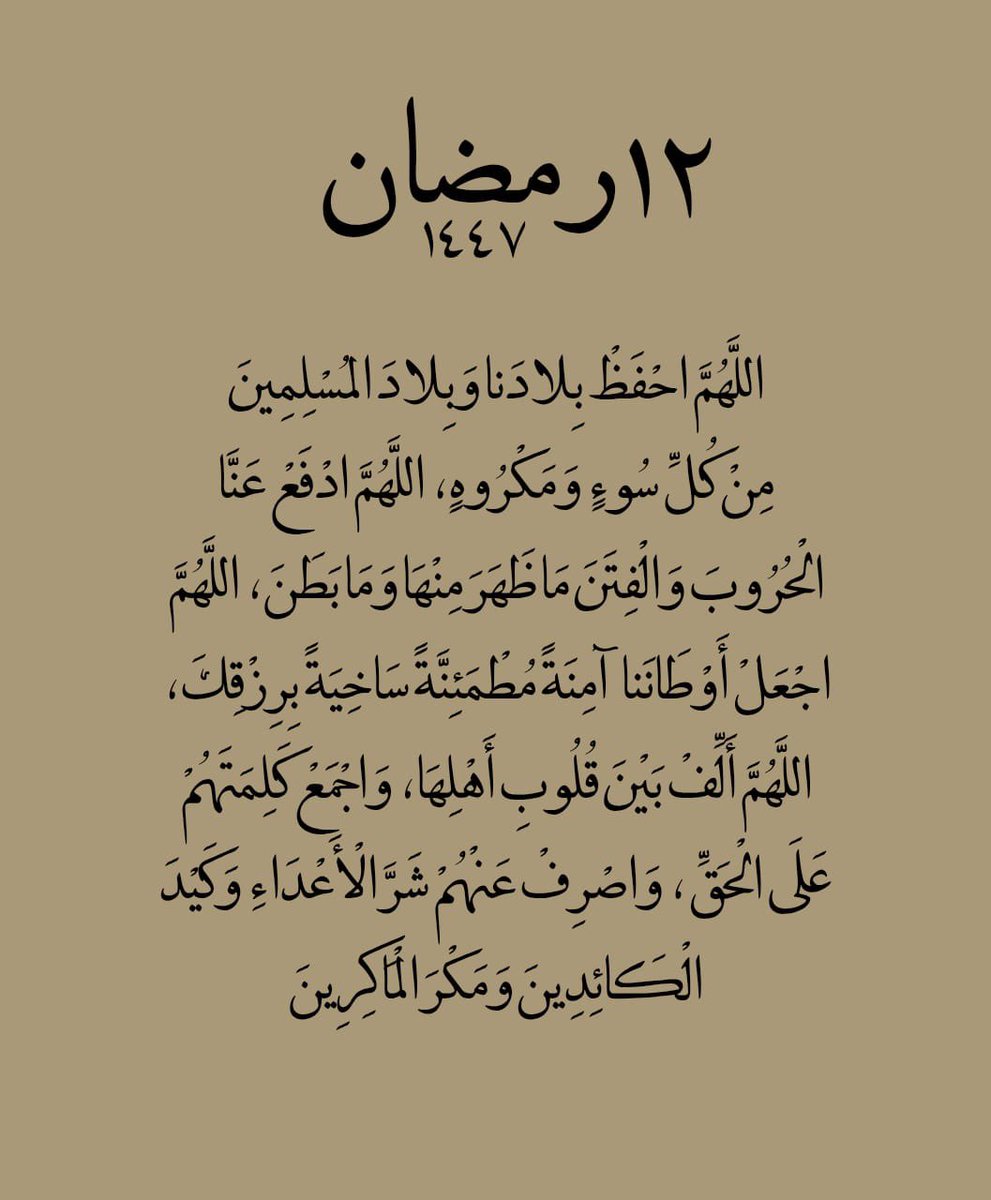 ١٢ رمضان
١٤٤٧
اللَّهُمَّ احْفَظْ بِلادَنا وَبِلادَ المُسْلِمِينَ
مِنْ كُلِّ سُوءٍ وَمَكْرُوهٍ، اللَّهُمَّ ادْفَعْ عَنَّا
الْحُرُوبَ وَالْفِتَنَ مَا ظَهَرَ مِنْهَا وَمَا بَطَنَ، اللَّهُمَّ
اجْعَلْ أَوْطَانَنا آمِنَةً مُطْمَئِنَّةً سَاخِيَةً بِرِزْقِكَ،
اللَّهُمَّ أَلِّفْ بَيْنَ قُلُوبِ أَهْلِهَا، وَاجْمَعْ كَلِمَتَهُمْ
عَلَى الْحَقِّ، وَاصْرِفْ عَنْهُمْ شَرَّ الْأَعْدَاءِ وَكَيْدَ
الْكَائِدِينَ وَمَكْرَ الْمَاكِرِينَ